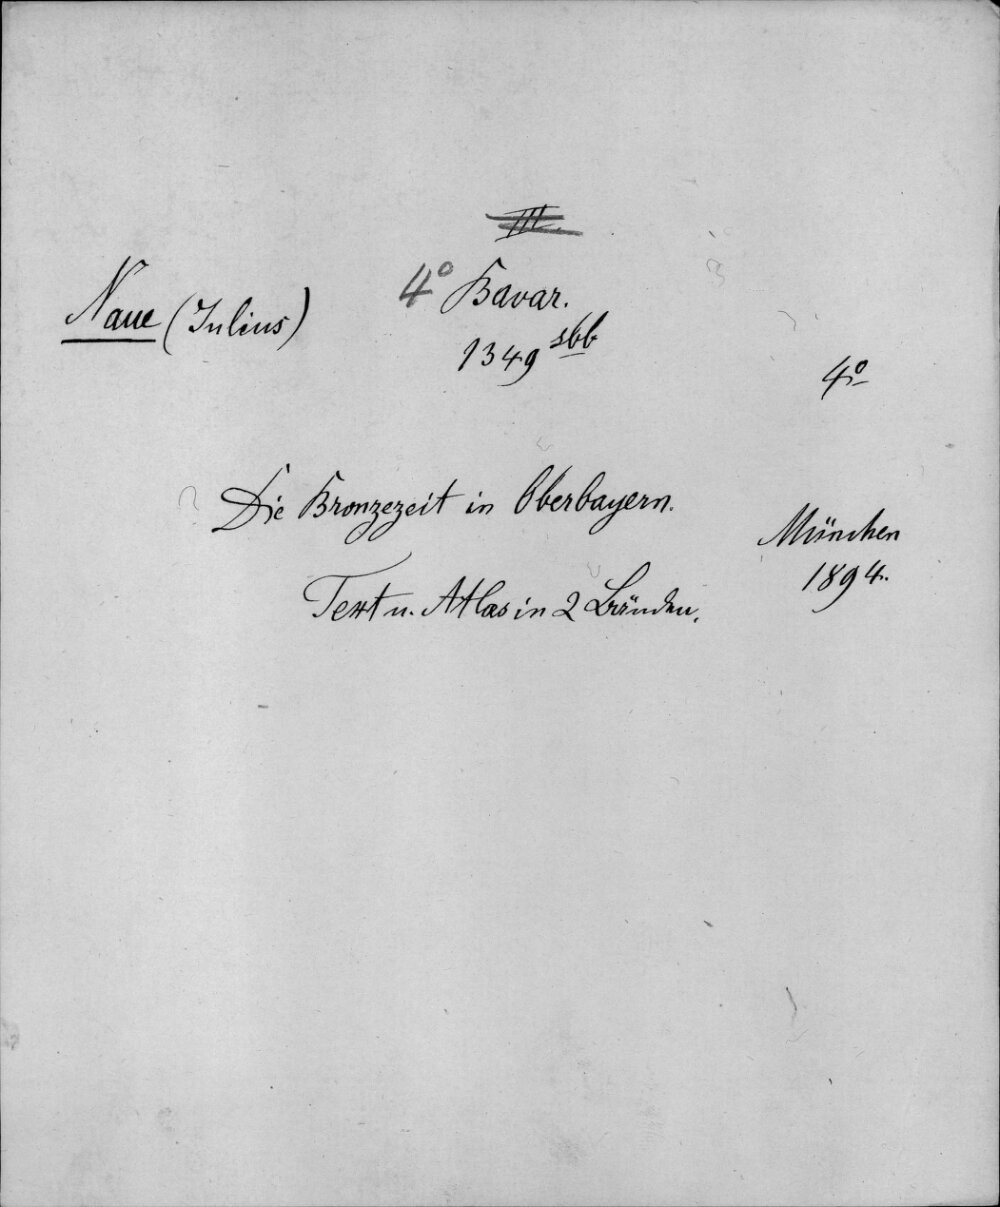 III.
4° Bavar.
Naue (Julius)
1349 sbb
4°
Die Bronzezeit in Oberbayern.
München
1894.
Text u. Atlas in 2 Bänden.